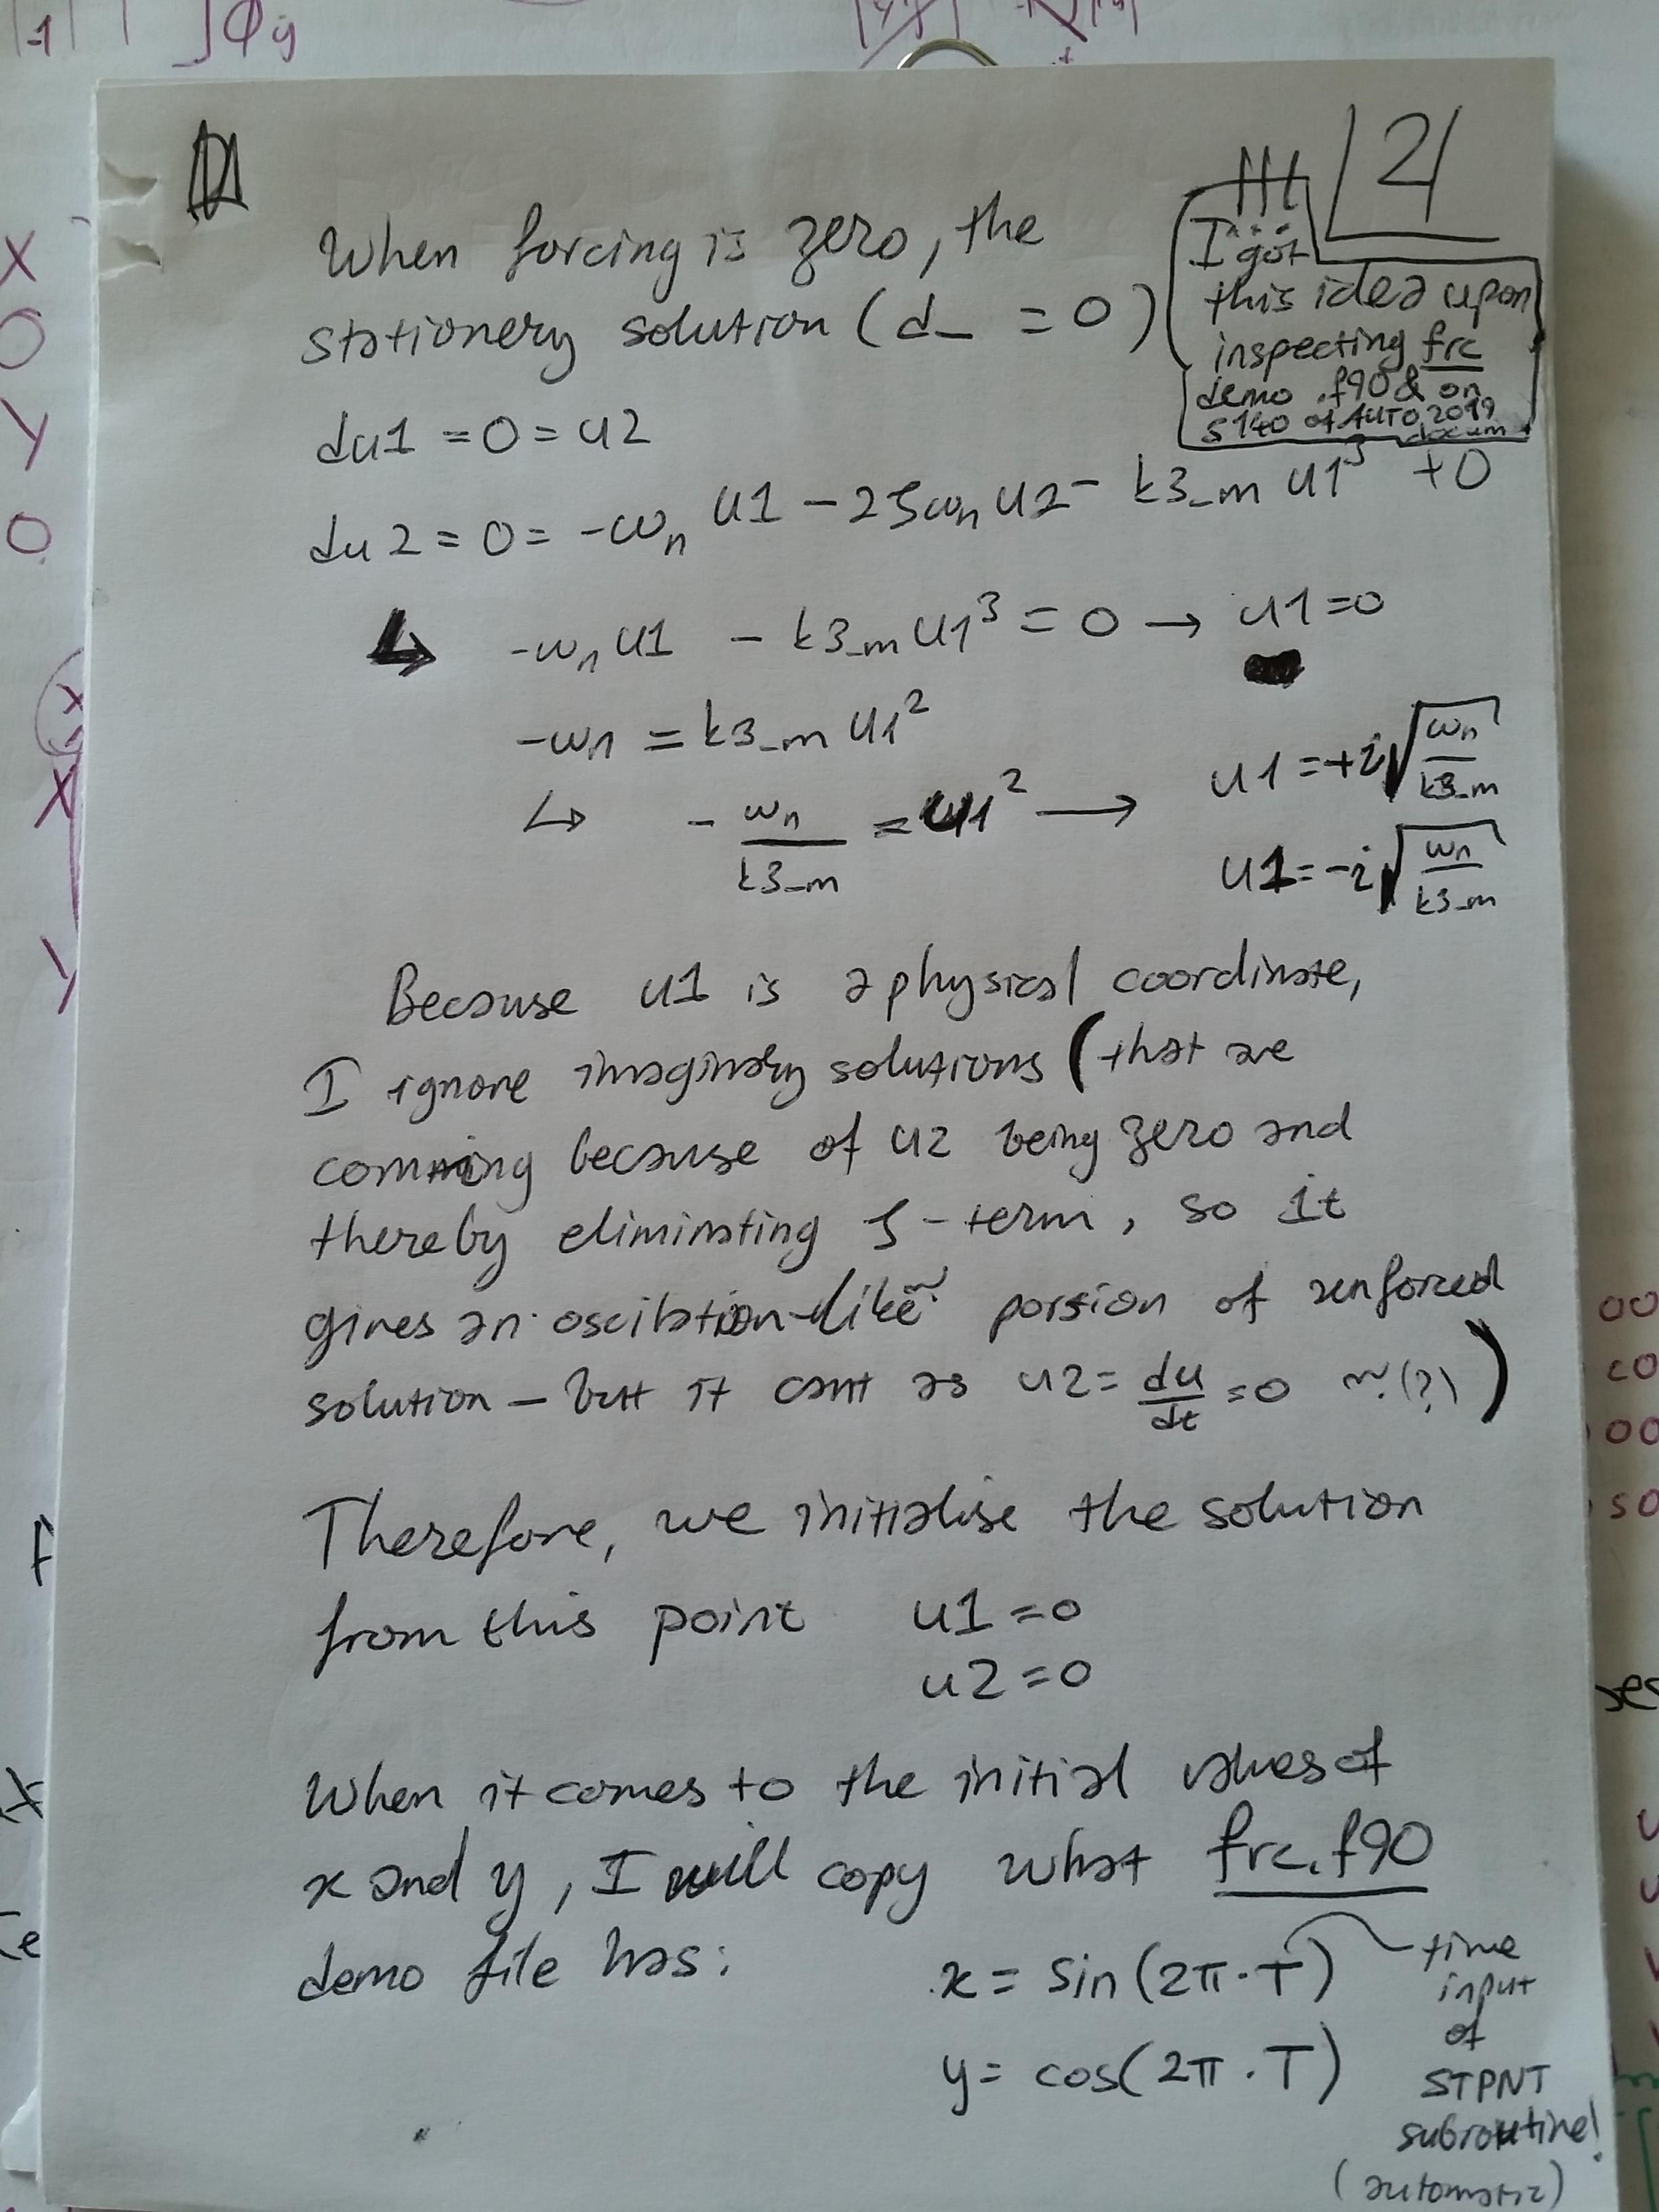 2
When forcing is zero, the
stationery solution (d_ = 0)
I got
this idea upon
inspecting frc
demo .f90 & on
S140 of AUTO 2019
docum
du1 = 0 = u2
du2 = 0 = -ωn u1 - 2ζωn u2 - k3_m u1³ + 0
↳ -ωn u1 - k3_m u1³ = 0 → u1 = 0
-ωn = k3_m u1²
↳ - ωn/k3_m = u1² → u1 = +i√(ωn/k3_m)
u1 = -i√(ωn/k3_m)
Because u1 is a physical coordinate,
I ignore imaginary solutions (that are
coming because of u2 being zero and
thereby eliminating ζ-term, so it
gives an oscilation-like portion of unforced
solution – but it cant as u2 = du/dt = 0 ~(?))
Therefore, we initialise the solution
from this point u1 = 0
u2 = 0
When it comes to the initial values of
x and y, I will copy what frc.f90
demo file has:
x = sin(2π·T)
y = cos(2π·T)
time
input
of
STPNT
subroutine!
(automatic)